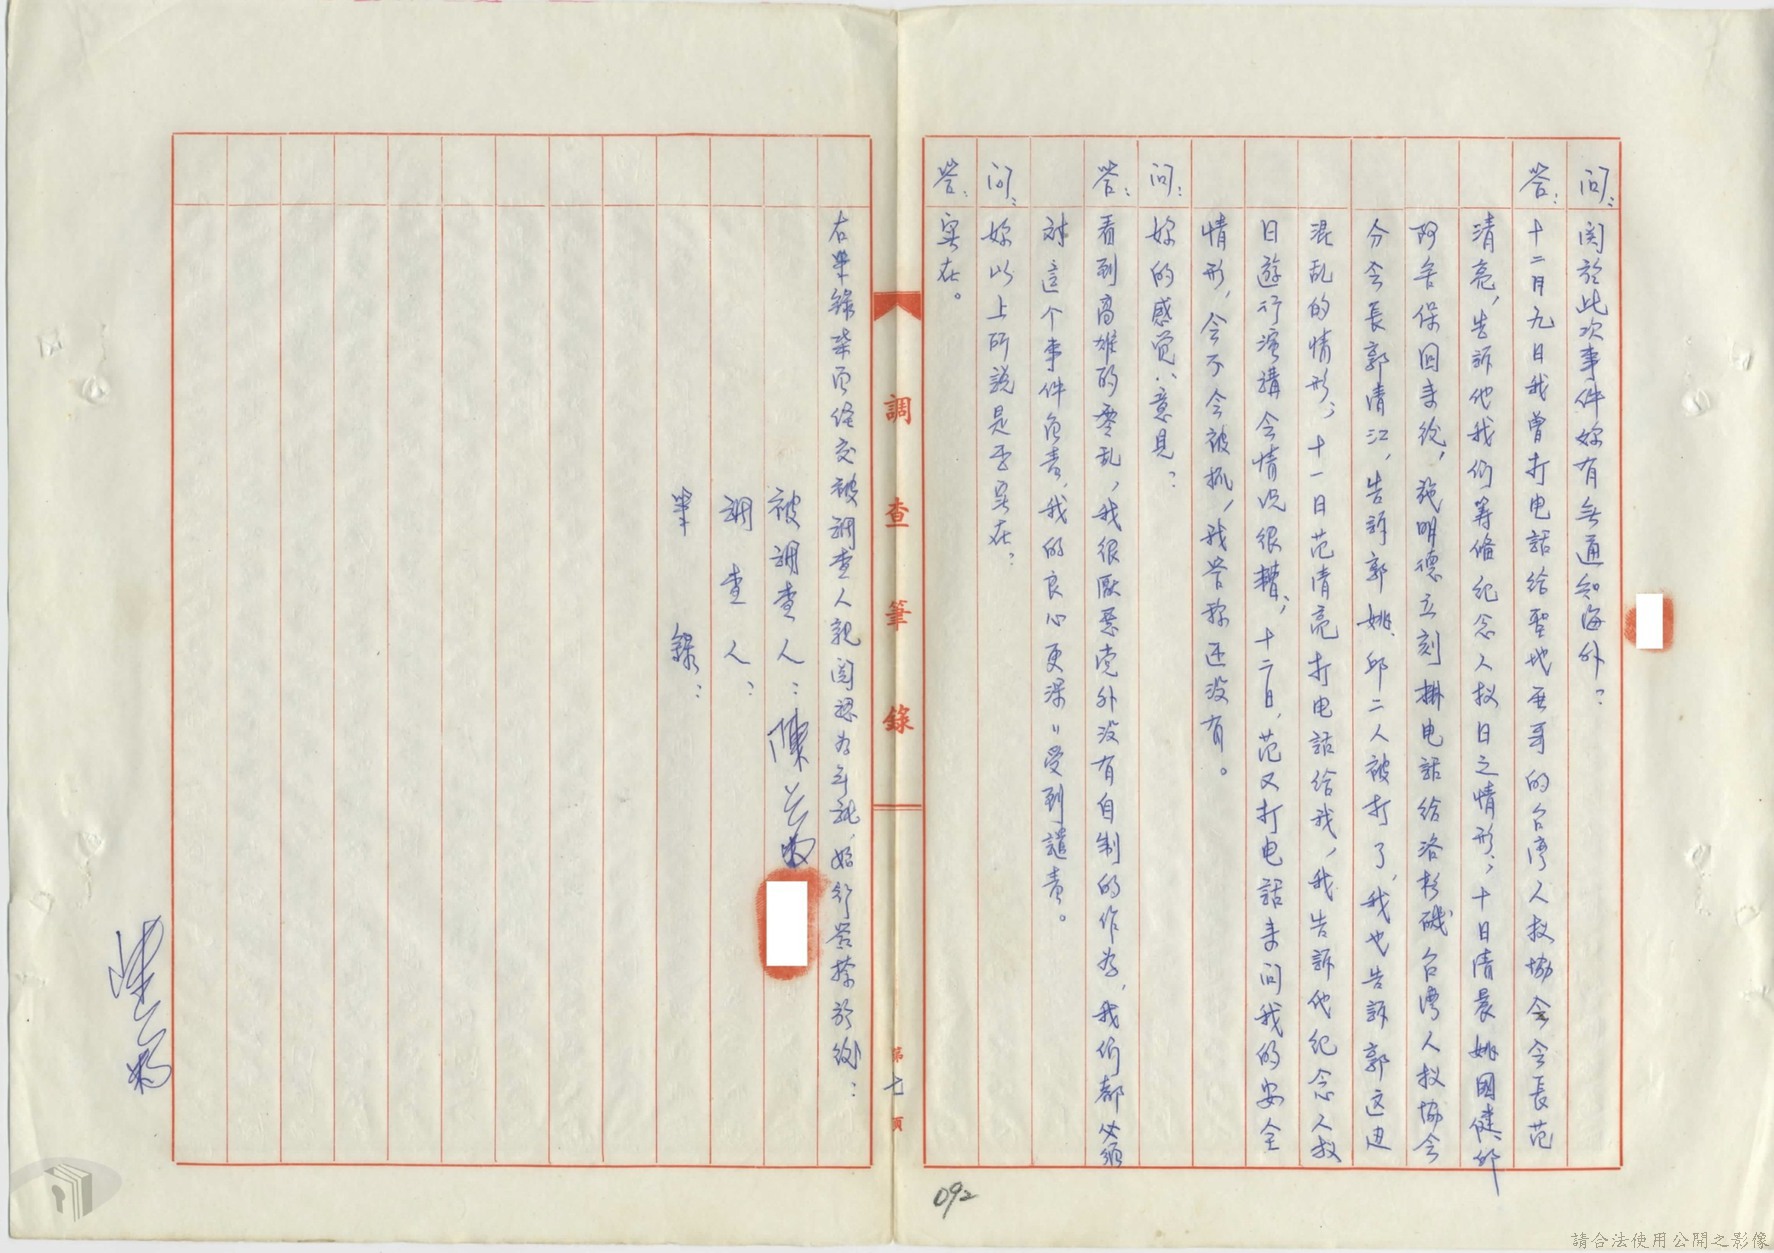 問：関於此次事件妳有無通知海外？
答：十二月九日我曾打电話給聖地亜哥的台湾人权協会会長范
清亮，告訴他我们筹俻紀念人权日之情形，十日清晨姚國健、邱
阿舍保回来後，施明德立刻掛电話給洛杉磯台湾人权協会
分会長郭清江，告訴郭姚、邱二人被打了，我也告訴郭这边
混乱的情形，十一日范清亮打电話给我，我告訴他纪念人权
日遊行演講会情况很糟，十二日，范又打电話来问我的安全
情形，会不会被抓，我答称还没有。
问：妳的感觉、意見？
答：看到高雄的零乱，我很厭惡党外没有自制的作为，我们都必須
対這个事件负责，我的良心更深深受到譴責。
问：妳以上所說是否实在？
答：实在。
調查筆錄
第七頁
右笔錄柒页经交被調查人親閱認为無訛，始行簽捺於後：
被調查人：陳
調查人：
筆錄：
092
請合法使用公開之影像